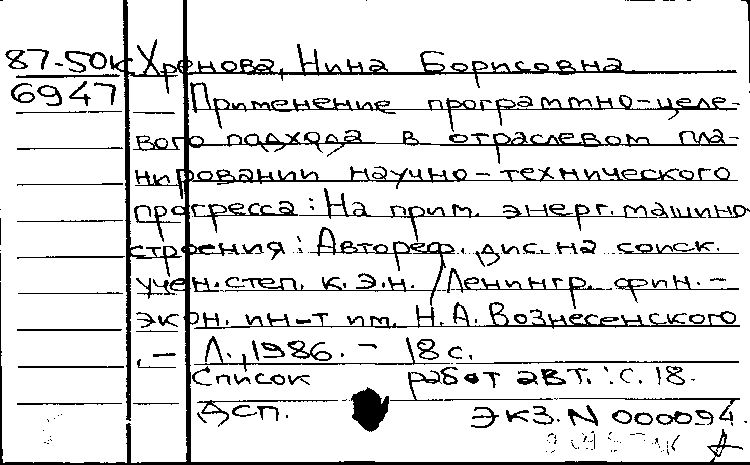 87-50к Хренова, Нина Борисовна
6947 Применение программно-целе-
вого подхода в отраслевом пла-
нировании научно-технического
прогресса: На прим. энерг. машино
строения: Автореф. дис. на соиск.
учен. степ. к. э. н. / Ленингр. фин.-
экон. ин-т им. Н. А. Вознесенского
.- Л., 1986. - 18 с.
Список работ авт.: с. 18.
Дсп. ЭКЗ. N 000094.